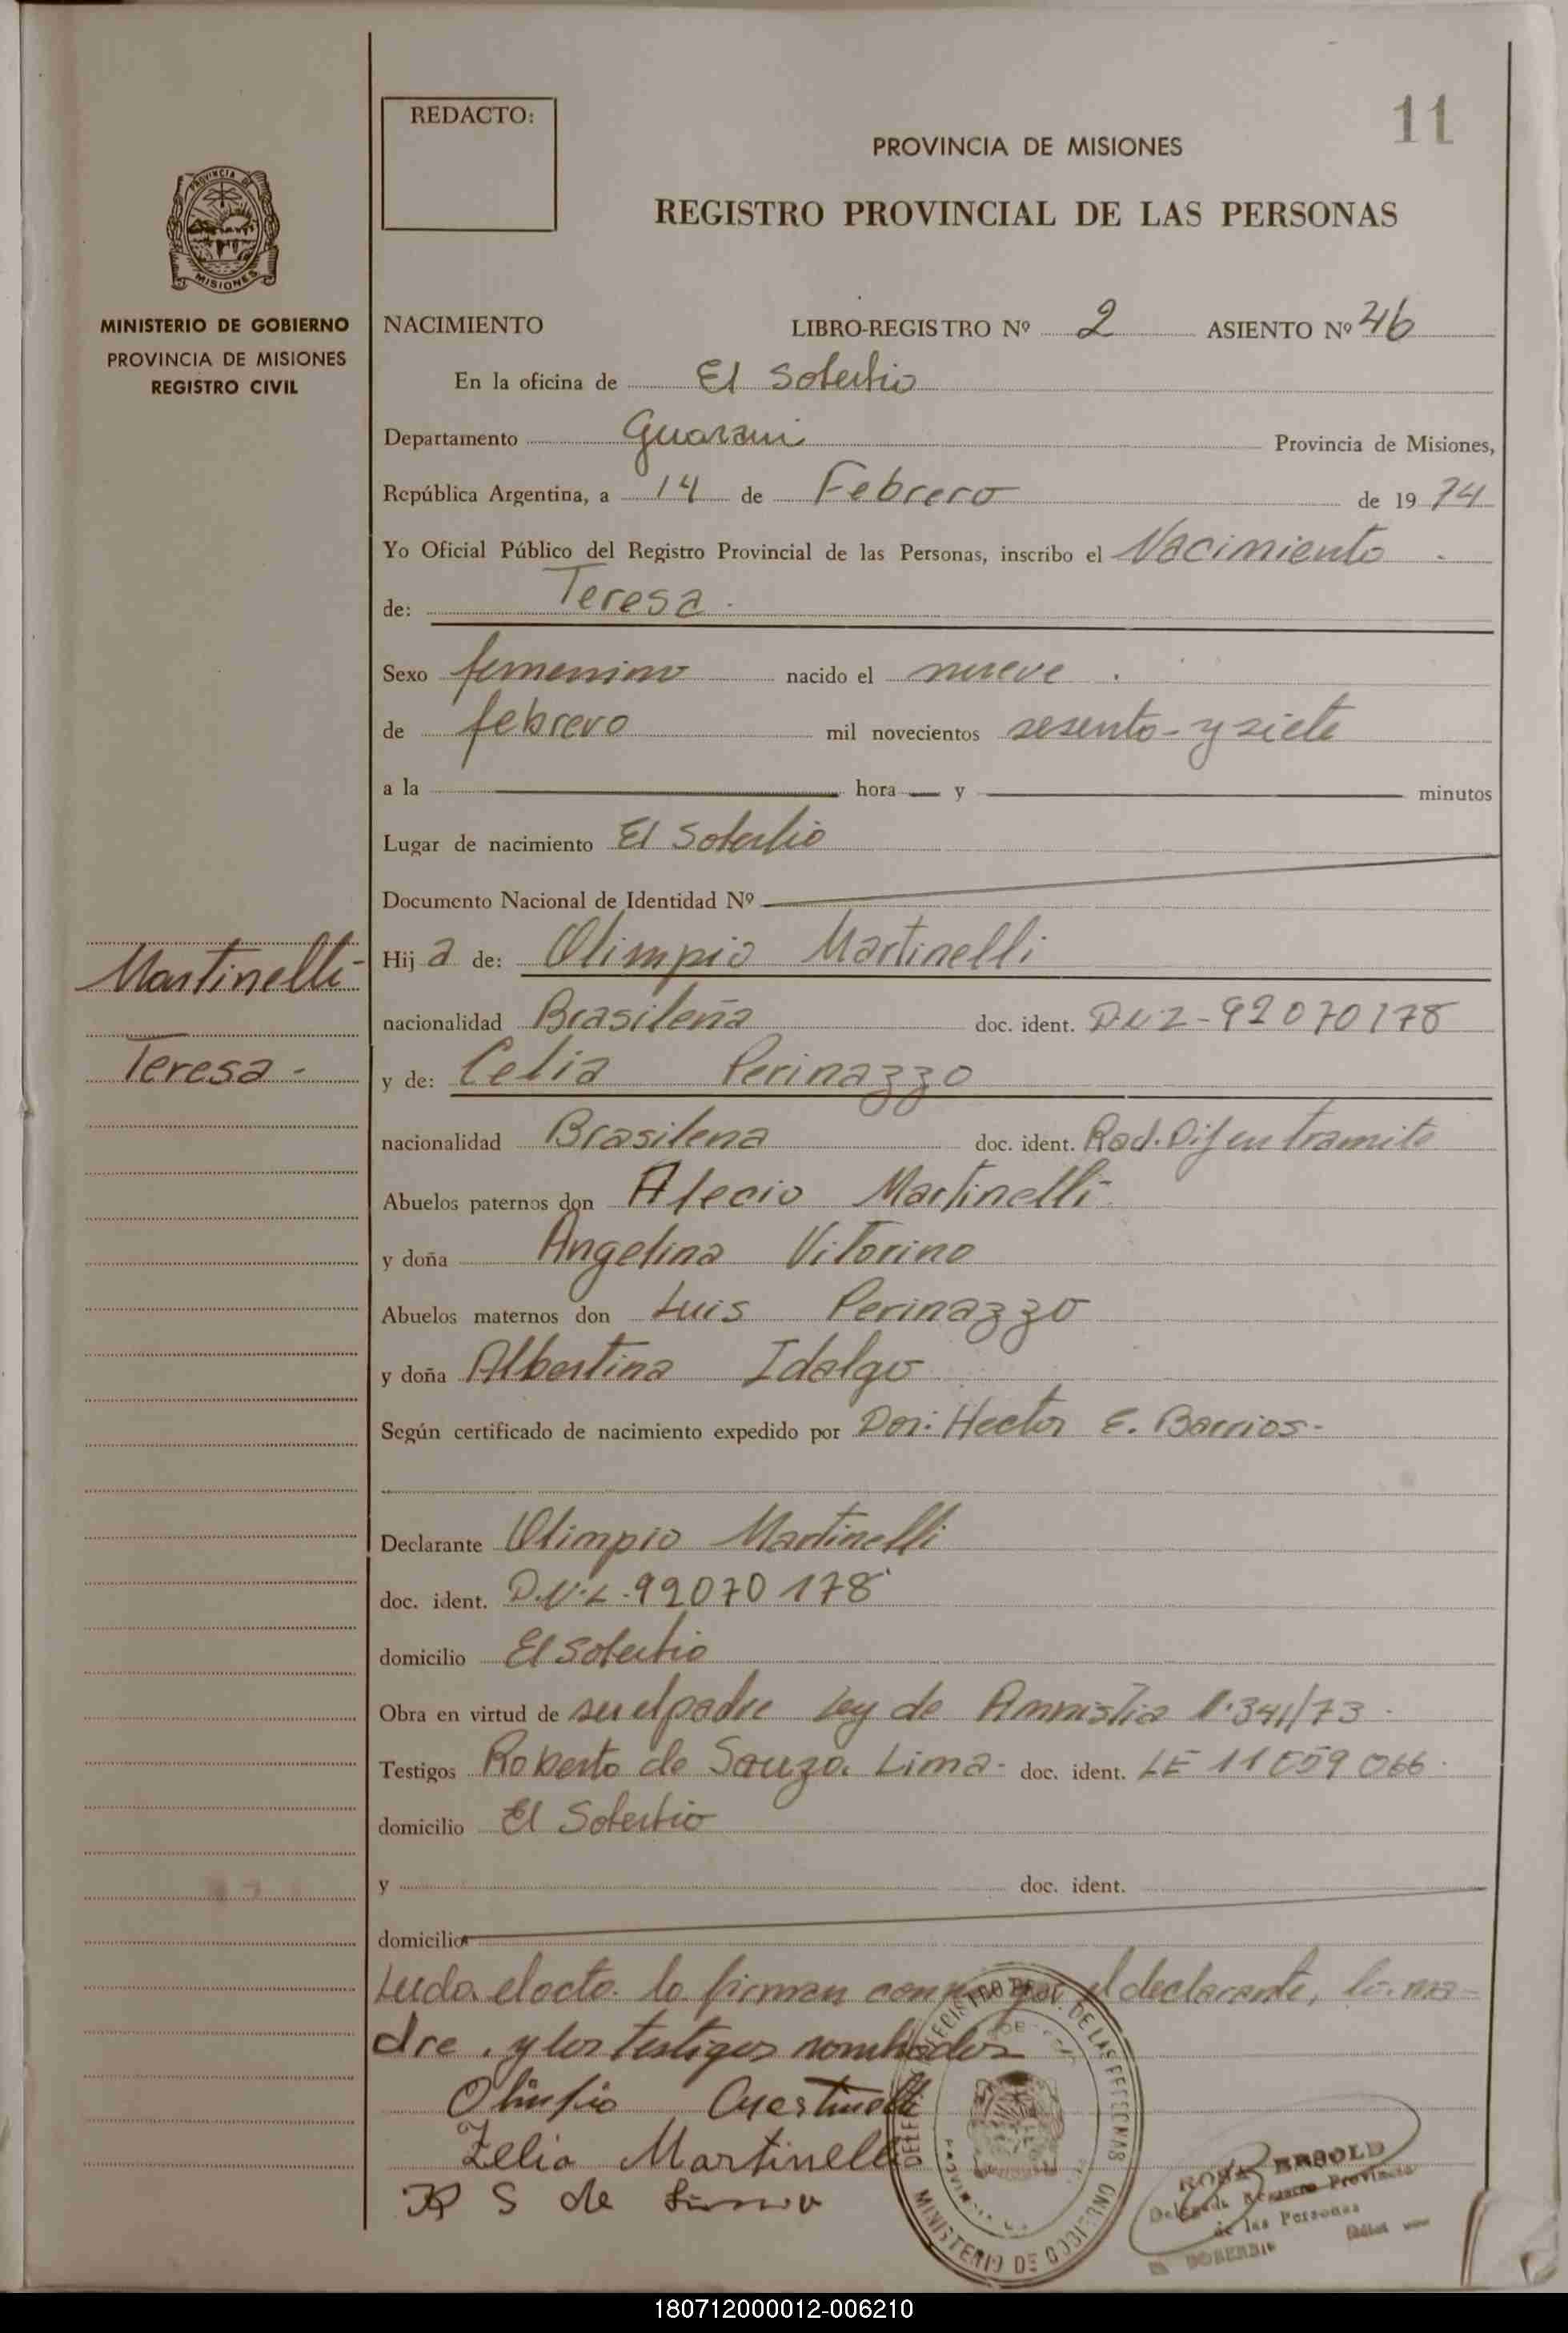 11
REDACTO:
PROVINCIA DE MISIONES
REGISTRO PROVINCIAL DE LAS PERSONAS
MISIONES
MINISTERIO DE GOBIERNO
PROVINCIA DE MISIONES
REGISTRO CIVIL
NACIMIENTO LIBRO-REGISTRO Nº 2 ASIENTO Nº 46
En la oficina de El Soberbio
Departamento Guarani Provincia de Misiones,
República Argentina, a 14 de Febrero de 19 74
Yo Oficial Público del Registro Provincial de las Personas, inscribo el Nacimiento
de: Teresa.
Sexo femenino nacido el nueve.
de febrero mil novecientos sesenta y siete
a la hora y minutos
Lugar de nacimiento El Soberbio
Documento Nacional de Identidad Nº
Martinelli
Teresa-
Hij a de: Olimpio Martinelli
nacionalidad Brasileña doc. ident. 92070178
y de: Celia Perinazzo
nacionalidad Brasilena doc. ident. Rad. Dif en tramite
Abuelos paternos don Alecio Martinelli
y doña Angelina Vitorino
Abuelos maternos don Luis Perinazzo
y doña Albertina Idalgo
Según certificado de nacimiento expedido por Hector E. Barrios-
Declarante Olimpio Martinelli
doc. ident. 92070178
domicilio El Soberbio
Obra en virtud de ser el padre Ley de Amnistia
Testigos Roberto de Souza Lima- doc. ident. LE 11059066
domicilio El Soberbio
y doc. ident.
domicilio
Leida el acta la firman conmigo el declarante, la ma-
dre, y los testigos nombrados
Olimpio Martinelli
Zelia Martinelli
R S de Lima
MINISTERIO DE GOBIERNO
de las Personas
180712000012-006210